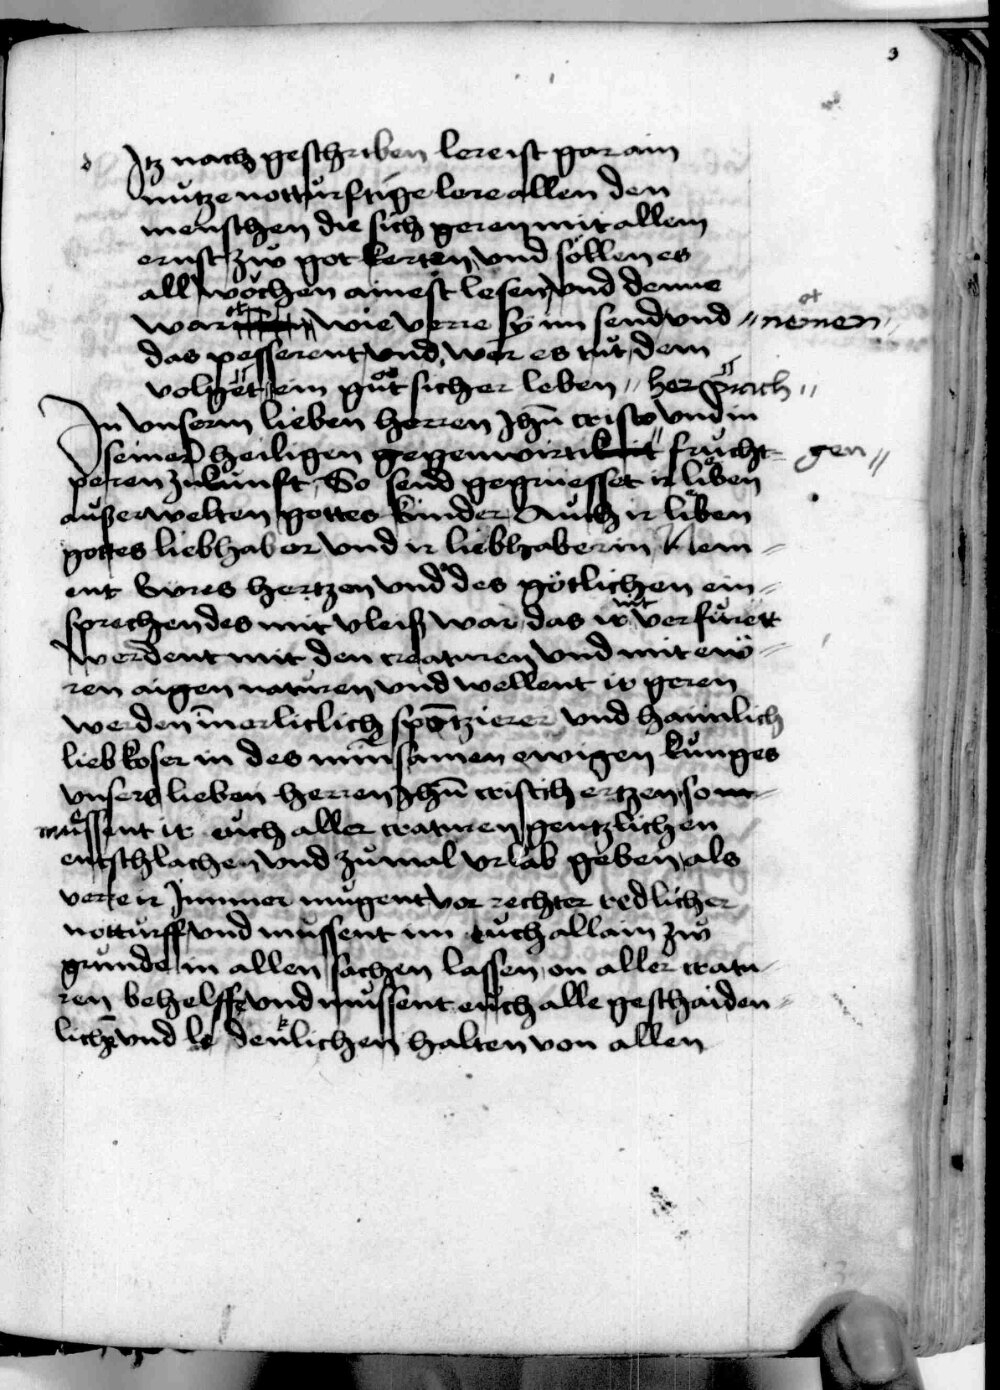 3
Itz nach geschriben lere ist gar ain
nutze notturftige lere allen den
menschen die sich geren mit allem
ernst zuo got kerten vnd söllen es
all wochen ainest lesen vnd denne
war wie verre sy im send vnd " nemen "
das pesserent vnd wer es tuot dem
volget ein guot sicher leben " her nach "
In vnserm lieben herren Jhū cristo vnd in
seiner heiligen gegenwirtikait frucht- gen "
peren zukunft So send gegrüesset ir lieben
außerwelten gottes kinder Auch ir lieben
gottes liebhaber vnd ir liebhaberin Nem-
ent ewres hertzen vnd des götlichen ein-
sprechen des mit vleiß war das ir nit verfürett
werdent mit den creaturen vnd mit ewͦ-
ren aigen naturen vnd wellent ir geren
werden spatzierer vnd haimlich
liebkoser in des minsamen ewigen kunges
vnsers lieben herren Jhū cristi hertzen so
müessent ir euch aller craturen gentzlichen
entschlachen vnd zumal vrlab geben als
verre ir Jmmer mugent vor rechter redlicher
notturfft vnd mussent im euch allain zuo
grunde in allen sachen lassen on aller cratu-
ren behelff vnd mussent euch alle geschaiden-
lichē vnd le denklichen halten von allen